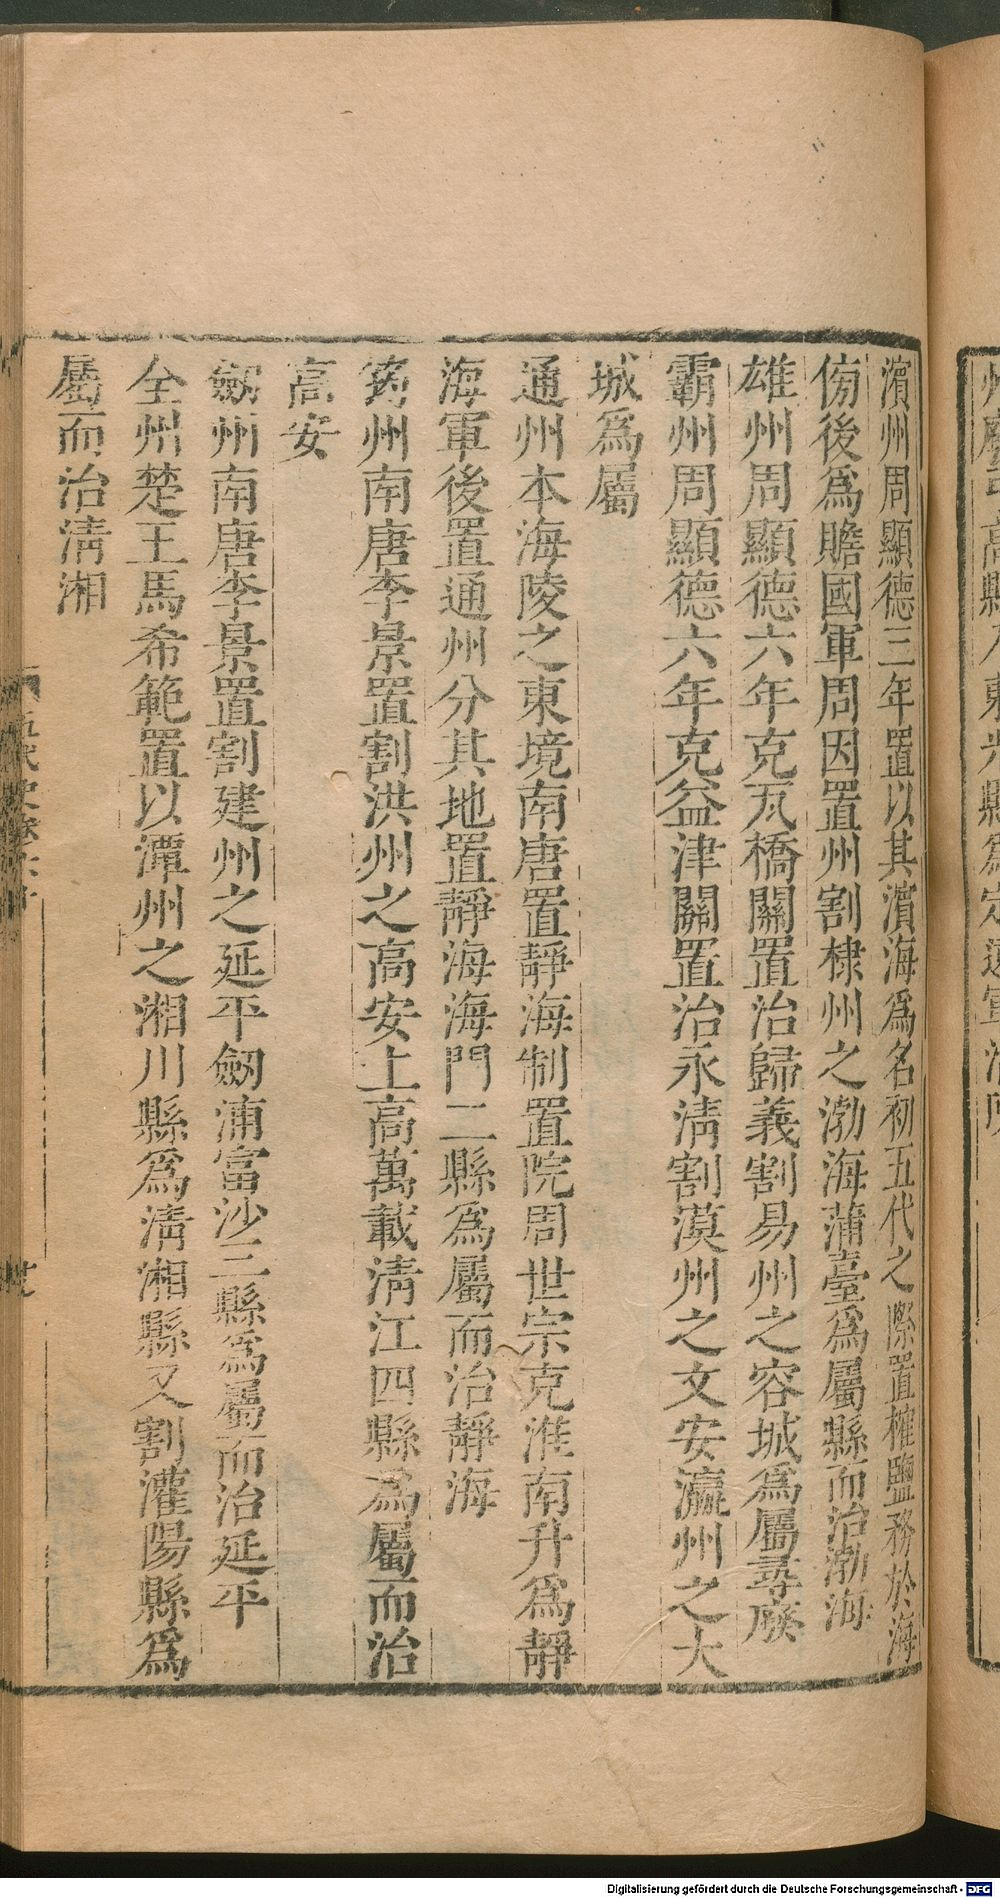 濱州周顯德三年置以其濱海爲名初五代之際置榷鹽務於海
傍後爲贍國軍周因置州割棣州之渤海蒲臺爲屬縣而治渤海
雄州周顯德六年克瓦橋關置治歸義割易州之容城爲屬尋廢
霸州周顯德六年克益津關置治永淸割漠州之文安瀛州之大
城爲屬
通州本海陵之東境南唐置靜海制置院周世宗克淮南升爲靜
海軍後置通州分其地置靜海海門二縣爲屬而治靜海
筠州南唐李景置割洪州之高安上高萬載淸江四縣爲屬而治
高安
劒州南唐李景置割建州之延平劒浦富沙三縣爲屬而治延平
全州楚王馬希範置以潭州之湘川縣爲淸湘縣又割灌陽縣爲
屬而治淸湘
五代史卷六十
Digitalisierung gefördert durch die Deutsche Forschungsgemeinschaft - DFG